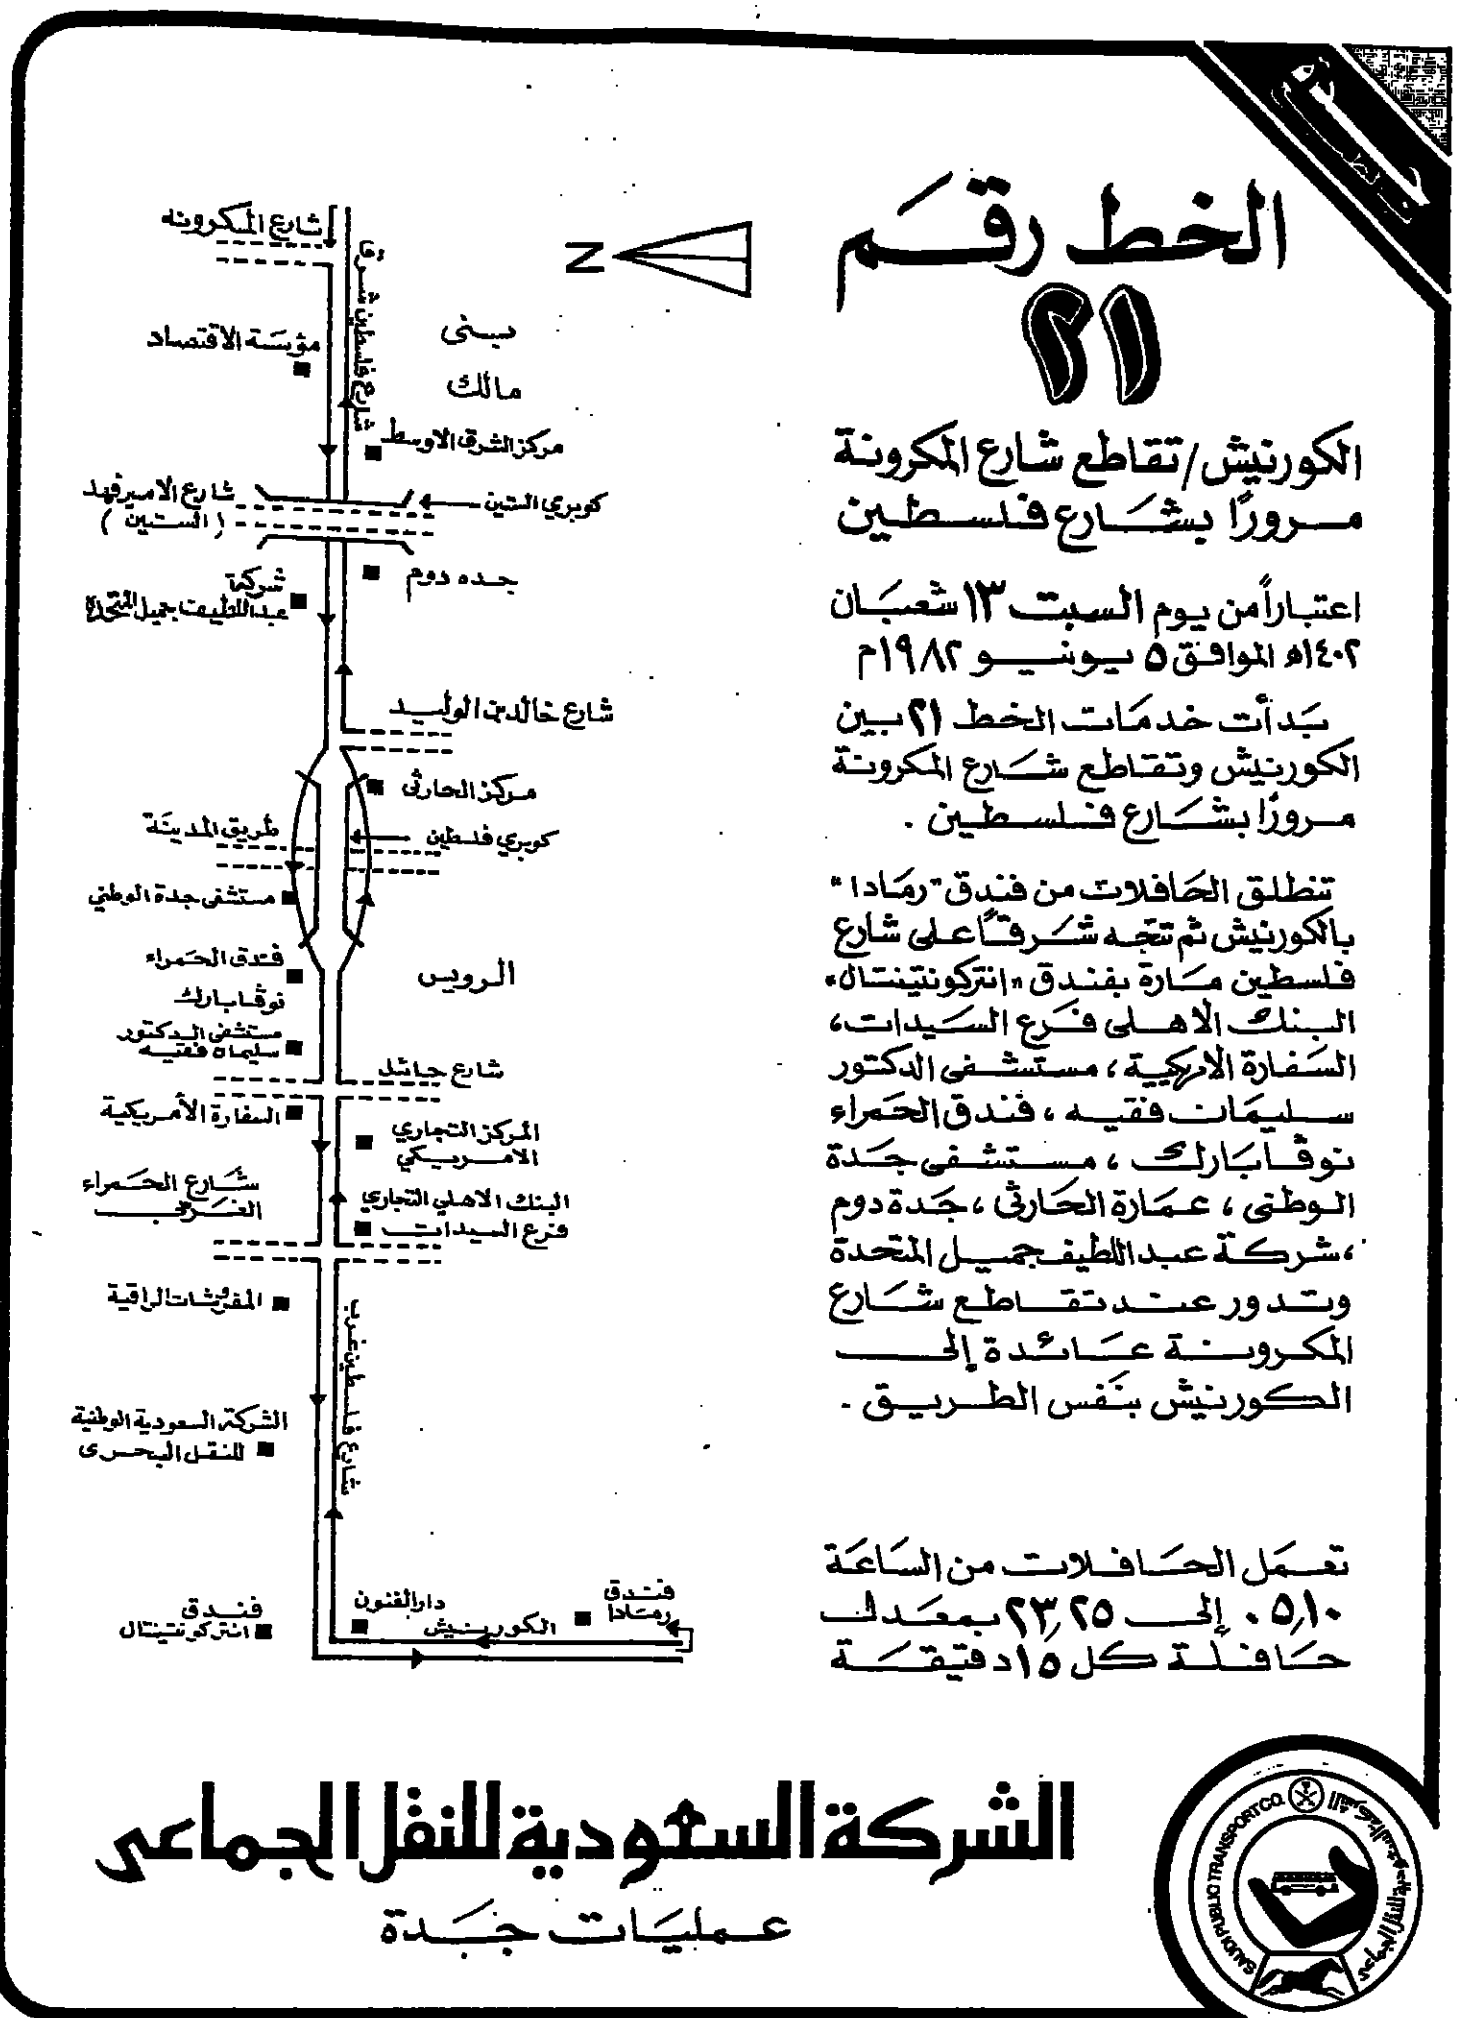 الخط رقم
٢١
الكورنيش/تقاطع شارع المكرونة
مرورًا بشارع فلسطين
اعتباراً من يوم السبت ١٣ شعبان
١٤٠٢هـ الموافق ٥ يونيو ١٩٨٢م
بدأت خدمات الخط ٢١ بين
الكورنيش وتقاطع شارع المكرونة
مرورًا بشارع فلسطين .
تنطلق الحافلات من فندق "رمادا"
بالكورنيش ثم تتجه شرقًا على شارع
فلسطين مارة بفندق «انتركونتيننتال»
البنك الاهلى فرع السيدات،
السفارة الامريكية ، مستشفى الدكتور
سليمان فقيه ، فندق الحمراء
نوڤا بارك ، مستشفى جدة
الوطنى ، عمارة الحارثى ، جدة دوم
، شركة عبد اللطيف جميل المتحدة
وتدور عند تقاطع شارع
المكرونة عائدة إلى
الكورنيش بنفس الطريق .
تعمل الحافلات من الساعة
٠٥,١٠ إلى ٢٣,٢٥ بمعدل
حافلة كل ١٥ دقيقة
N
شارع المكرونه
شارع فلسطين شرقا
مؤسسة الاقتصاد
بنى
مالك
مركز الشرق الاوسط
شارع الامير فهد
( الستين )
كوبري الستين
جده دوم
شركة
عبداللطيف جميل المتحدة
شارع خالد بن الوليد
مركز الحارثى
طريق المدينة
كوبري فلسطين
مستشفى جدة الوطني
فندق الحمراء
نوڤا بارك
الرويس
مستشفى الدكتور
سليمان فقيه
شارع حائل
السفارة الأمريكية
المركز التجاري
الامريكي
شارع الحمراء
الغربي
البنك الاهلي التجاري
فرع السيدات
المفروشات الراقية
شارع فلسطين غرب
الشركة السعودية الوطنية
للنقل البحرى
فندق
انتركونتيننتال
دار الفنون
الكورنيش
فندق
رمادا
الشركة السعودية للنقل الجماعى
عمليات جدة
SAUDI PUBLIC TRANSPORT CO.
الشركة السعودية للنقل الجماعى